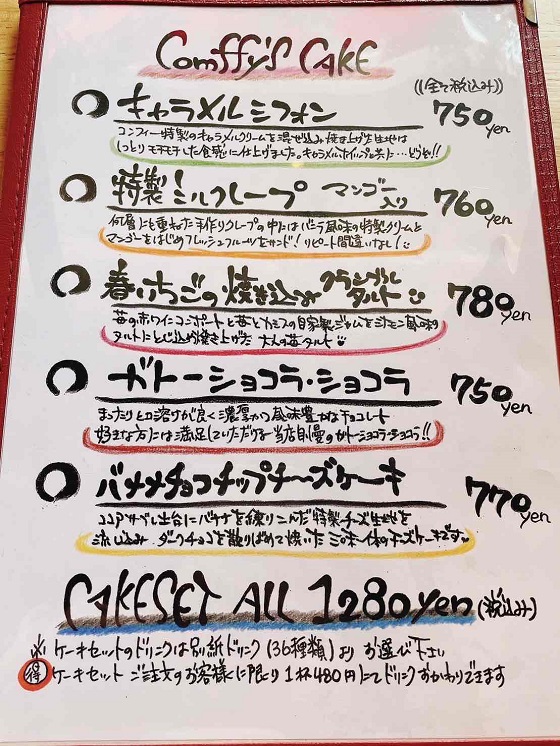 Comffy's CAKE
((全て税込み))
キャラメルシフォン 750yen
コンフィー特製のキャラメルクリームを混ぜ込み焼き上げた生地は
しっとりモチモチした食感に仕上げました。キャラメルホイップと共に…どうぞ!!
特製!ミルクレープ マンゴー入り 760yen
何層にも重ねた手作りクレープの中にはバニラ風味の特製クリームと
マンゴーをはじめフレッシュフルーツをサンド!リピート間違いなし!
春いちごの焼き込みクランブルタルト 780yen
苺の赤ワインコンポートと苺とカシスの自家製ジャムをシナモン風味の
タルトにとじ込め焼き上げた 大人の苺タルト
ガトーショコラ・ショコラ 750yen
まったりと口溶けが良く濃厚かつ風味豊かなチョコレート
好きな方には満足していただける当店自慢のガトーショコラ・ショコラ!!
バナナチョコチップチーズケーキ 770yen
ココアサブレ土台にバナナを練りこんだ特製チーズ生地を
流し込み ダークチョコを散りばめて焼いた三味一体のチーズケーキです
CAKESET All 1280yen (税込み)
※ ケーキセットのドリンクは別紙ドリンク(36種類)より お選び下さい
得 ケーキセット ご注文のお客様に限り 1杯480円にてドリンクおかわりできます